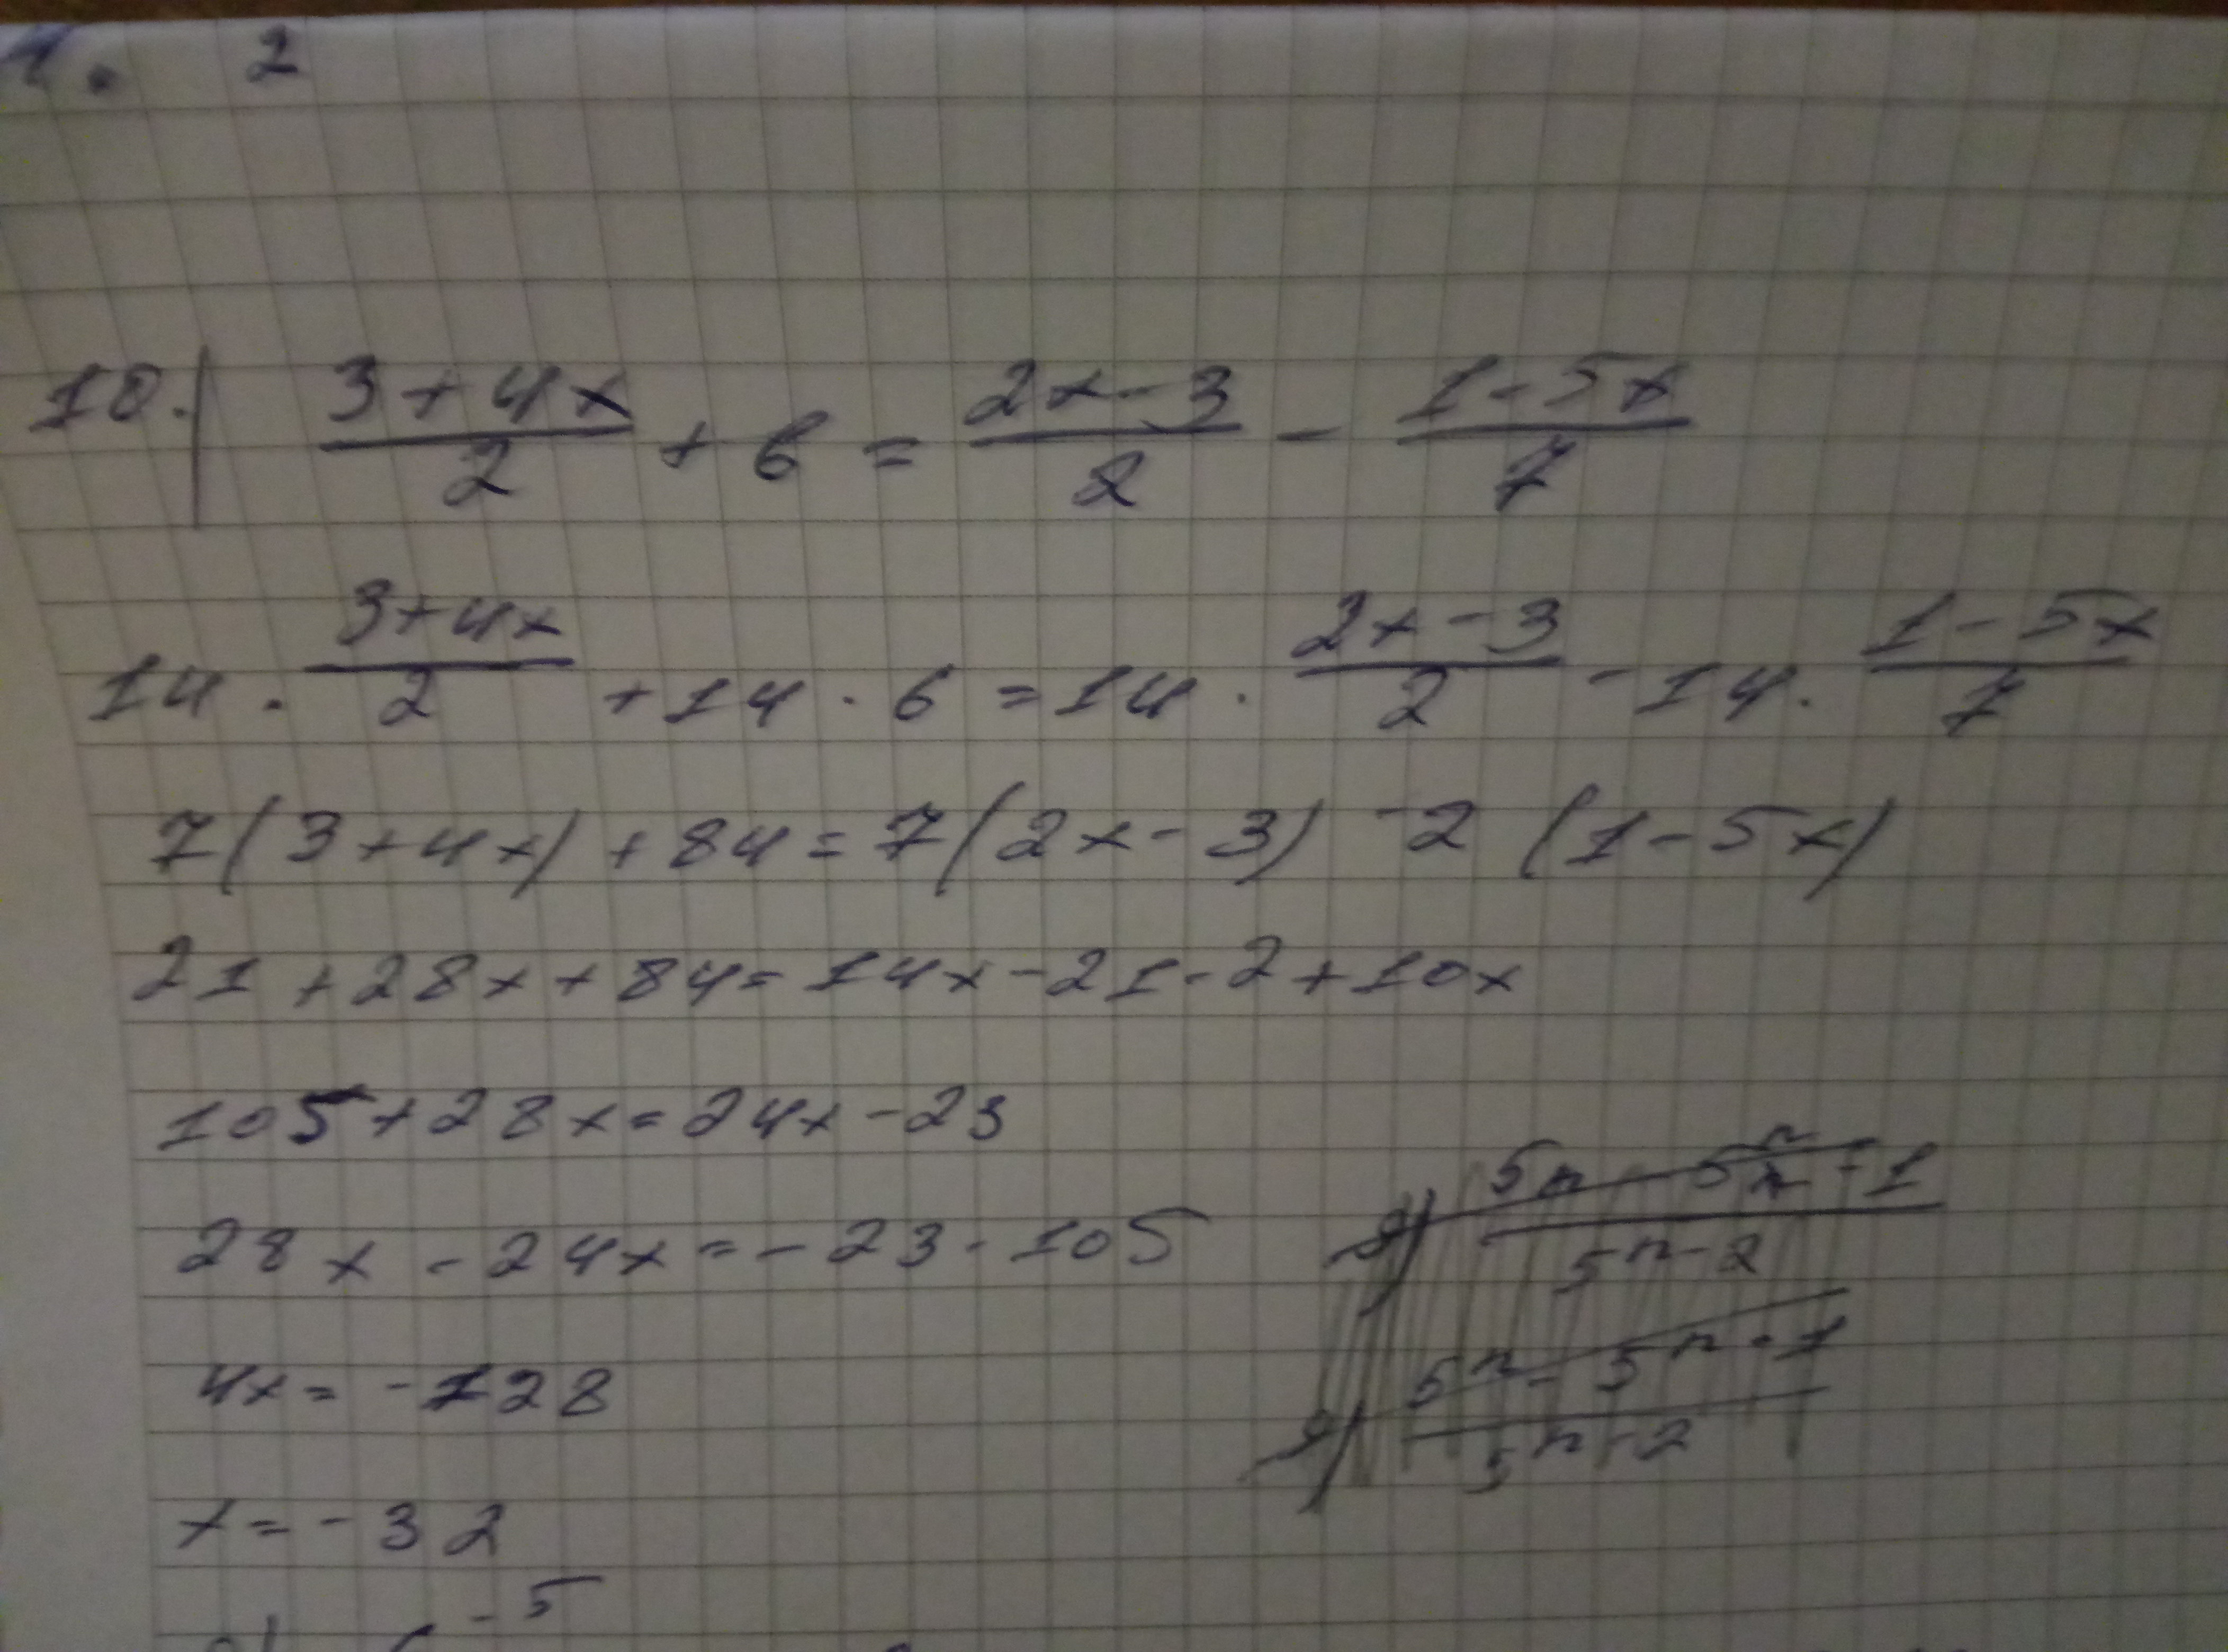 1. 2
10.) (3+4x)/2 + 6 = (2x-3)/2 - (1-5x)/7
14 · (3+4x)/2 + 14 · 6 = 14 · (2x-3)/2 - 14 · (1-5x)/7
7(3+4x)+84=7(2x-3) -2 (1-5x)
21+28x+84=14x-21-2+10x
105+28x=24x-23
28x-24x=-23-105
4x=-128
x=-32
-5